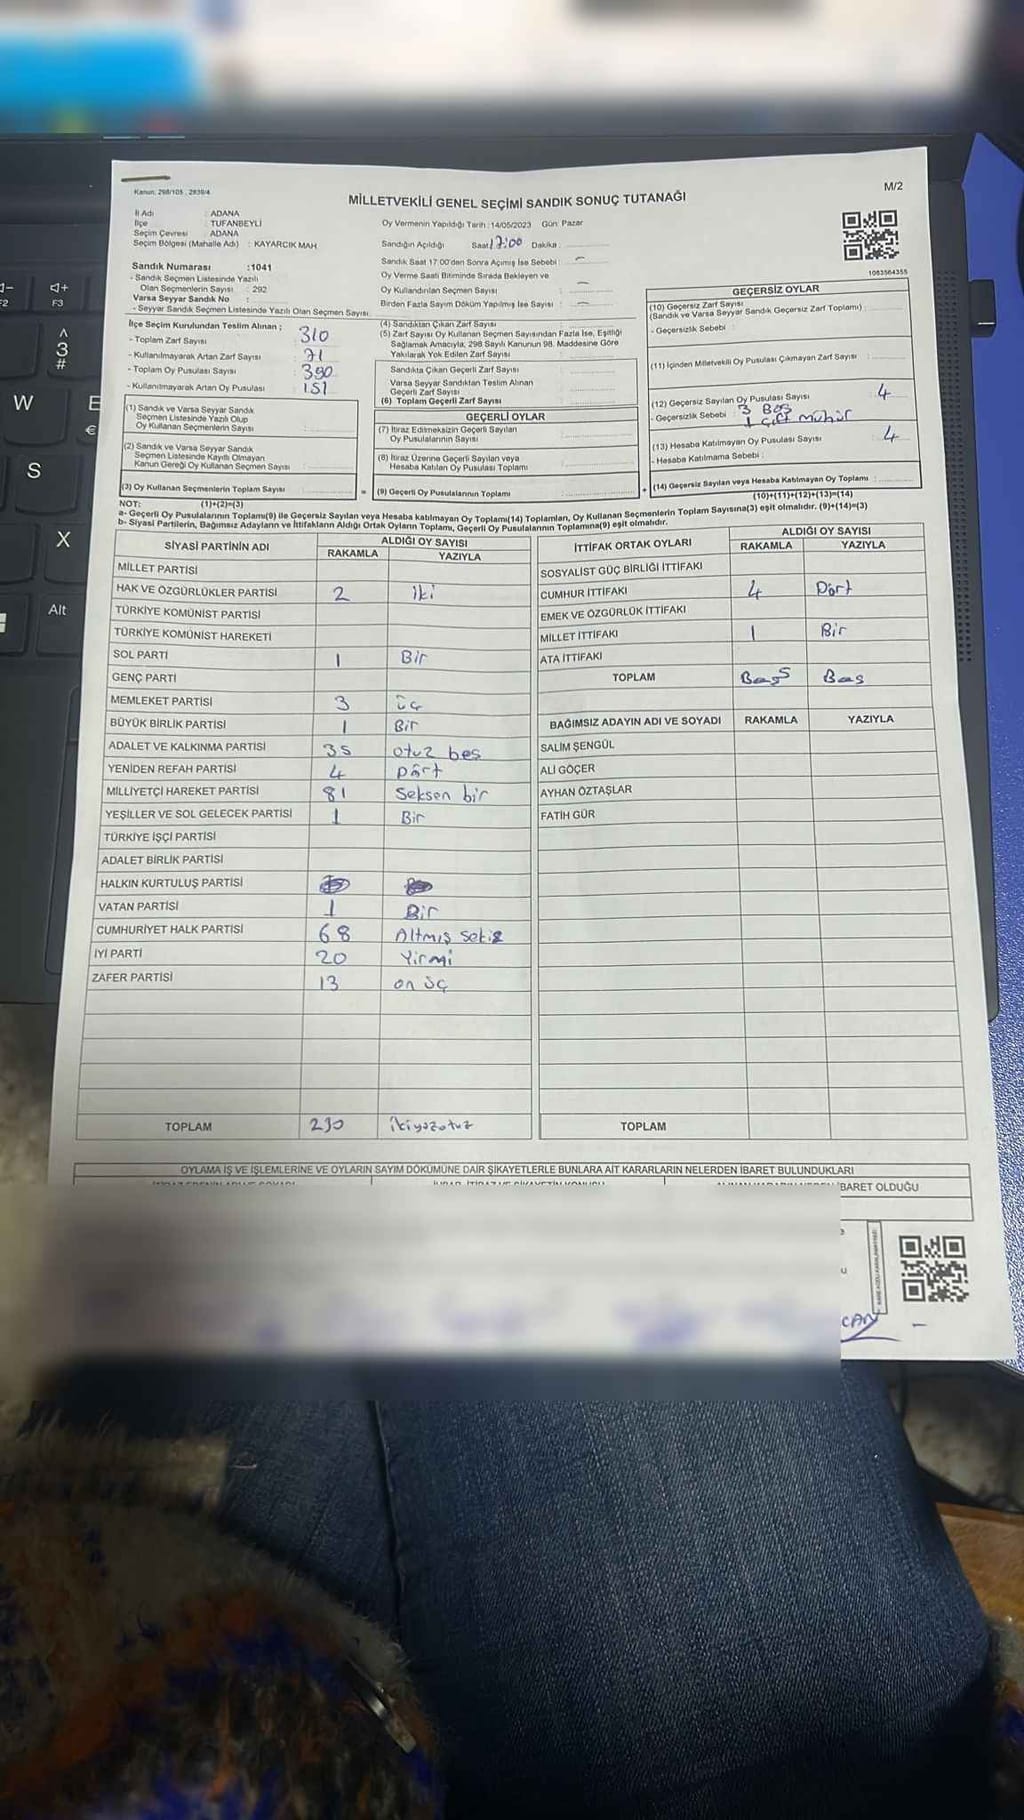 Kanun: 298/105 , 2839/4
M/2
MİLLETVEKİLİ GENEL SEÇİMİ SANDIK SONUÇ TUTANAĞI
İl Adı : ADANA
İlçe : TUFANBEYLİ
Seçim Çevresi : ADANA
Seçim Bölgesi (Mahalle Adı) : KAYARCIK MAH.
Oy Vermenin Yapıldığı Tarih : 14/05/2023 Gün: Pazar
Sandığın Açıldığı Saat 17:00 Dakika :
Sandık Saat 17:00'den Sonra Açılmış İse Sebebi : –
Oy Verme Saati Bitiminde Sırada Bekleyen ve
Oy Kullandırılan Seçmen Sayısı : –
Birden Fazla Sayım Döküm Yapılmış İse Sayısı : –
1083564355
Sandık Numarası :1041
- Sandık Seçmen Listesinde Yazılı
Olan Seçmenlerin Sayısı : 292
Varsa Seyyar Sandık No :
- Seyyar Sandık Seçmen Listesinde Yazılı Olan Seçmen Sayısı
İlçe Seçim Kurulundan Teslim Alınan ;
- Toplam Zarf Sayısı 310
- Kullanılmayarak Artan Zarf Sayısı 71
- Toplam Oy Pusulası Sayısı 390
- Kullanılmayarak Artan Oy Pusulası 151
(1) Sandık ve Varsa Seyyar Sandık
Seçmen Listesinde Yazılı Olup
Oy Kullanan Seçmenlerin Sayısı
(2) Sandık ve Varsa Seyyar Sandık
Seçmen Listesinde Kayıtlı Olmayan
Kanun Gereği Oy Kullanan Seçmen Sayısı
(3) Oy Kullanan Seçmenlerin Toplam Sayısı
(1)+(2)=(3)
(4) Sandıktan Çıkan Zarf Sayısı
(5) Zarf Sayısı Oy Kullanan Seçmen Sayısından Fazla İse, Eşitliği
Sağlamak Amacıyla, 298 Sayılı Kanunun 98. Maddesine Göre
Yakılarak Yok Edilen Zarf Sayısı
Sandıkta Çıkan Geçerli Zarf Sayısı
Varsa Seyyar Sandıktan Teslim Alınan
Geçerli Zarf Sayısı
(6) Toplam Geçerli Zarf Sayısı
GEÇERLİ OYLAR
(7) İtiraz Edilmeksizin Geçerli Sayılan
Oy Pusulalarının Sayısı
(8) İtiraz Üzerine Geçerli Sayılan veya
Hesaba Katılan Oy Pusulası Toplamı
= (9) Geçerli Oy Pusulalarının Toplamı
GEÇERSİZ OYLAR
(10) Geçersiz Zarf Sayısı
(Sandık ve Varsa Seyyar Sandık Geçersiz Zarf Toplamı) :
- Geçersizlik Sebebi :
(11) İçinden Milletvekili Oy Pusulası Çıkmayan Zarf Sayısı :
(12) Geçersiz Sayılan Oy Pusulası Sayısı 4
- Geçersizlik Sebebi : 3 Boş
1 çift mühür
(13) Hesaba Katılmayan Oy Pusulası Sayısı 4
- Hesaba Katılmama Sebebi :
+ (14) Geçersiz Sayılan veya Hesaba Katılmayan Oy Toplamı :
(10)+(11)+(12)+(13)=(14)
NOT:
a- Geçerli Oy Pusulalarının Toplamı(9) ile Geçersiz Sayılan veya Hesaba katılmayan Oy Toplamı(14) Toplamları, Oy Kullanan Seçmenlerin Toplam Sayısına(3) eşit olmalıdır. (9)+(14)=(3)
b- Siyasi Partilerin, Bağımsız Adayların ve İttifakların Aldığı Ortak Oyların Toplamı, Geçerli Oy Pusulalarının Toplamına(9) eşit olmalıdır.
SİYASİ PARTİNİN ADI ALDIĞI OY SAYISI
RAKAMLA YAZIYLA
MİLLET PARTİSİ
HAK VE ÖZGÜRLÜKLER PARTİSİ 2 iki
TÜRKİYE KOMÜNİST PARTİSİ
TÜRKİYE KOMÜNİST HAREKETİ
SOL PARTİ 1 Bir
GENÇ PARTİ
MEMLEKET PARTİSİ 3 üç
BÜYÜK BİRLİK PARTİSİ 1 Bir
ADALET VE KALKINMA PARTİSİ 35 otuz beş
YENİDEN REFAH PARTİSİ 4 Dört
MİLLİYETÇİ HAREKET PARTİSİ 81 Seksen bir
YEŞİLLER VE SOL GELECEK PARTİSİ 1 Bir
TÜRKİYE İŞÇİ PARTİSİ
ADALET BİRLİK PARTİSİ
HALKIN KURTULUŞ PARTİSİ
VATAN PARTİSİ 1 Bir
CUMHURİYET HALK PARTİSİ 68 Altmış Sekiz
İYİ PARTİ 20 Yirmi
ZAFER PARTİSİ 13 on üç
TOPLAM 230 ikiyüzotuz
İTTİFAK ORTAK OYLARI ALDIĞI OY SAYISI
RAKAMLA YAZIYLA
SOSYALİST GÜÇ BİRLİĞİ İTTİFAKI
CUMHUR İTTİFAKI 4 Dört
EMEK VE ÖZGÜRLÜK İTTİFAKI
MİLLET İTTİFAKI 1 Bir
ATA İTTİFAKI
TOPLAM
BAĞIMSIZ ADAYIN ADI VE SOYADI RAKAMLA YAZIYLA
SALİM ŞENGÜL
ALİ GÖÇER
AYHAN ÖZTAŞLAR
FATİH GÜR
TOPLAM
OYLAMA İŞ VE İŞLEMLERİNE VE OYLARIN SAYIM DÖKÜMÜNE DAİR ŞİKAYETLERLE BUNLARA AİT KARARLARIN NELERDEN İBARET BULUNDUKLARI
İBARET OLDUĞU
CAN
W
E
€
S
X
Alt
3
#
F2
F3